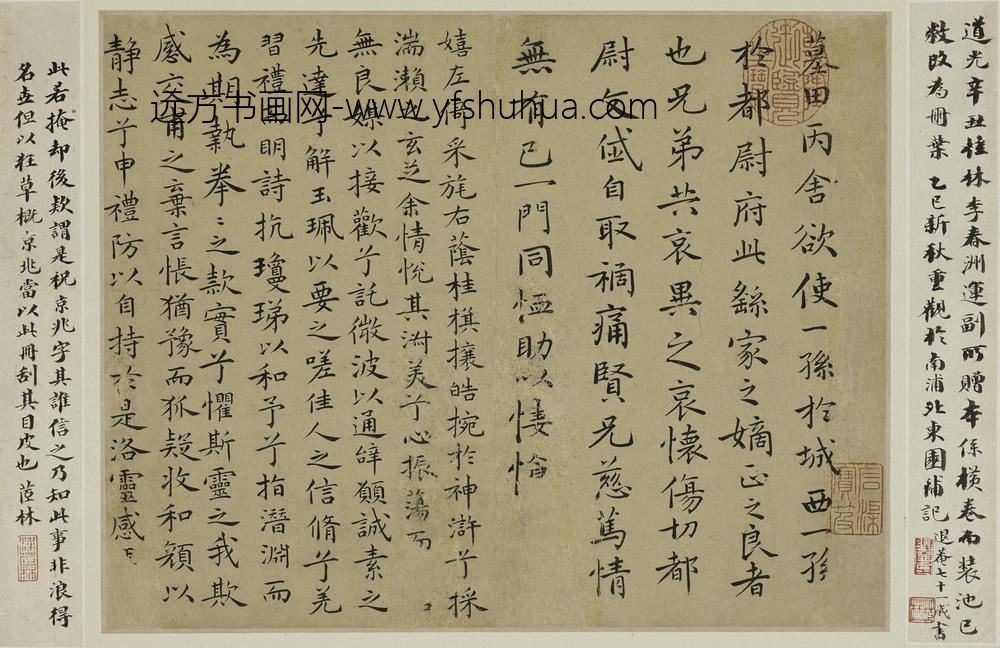 道光辛丑桂林李春洲運副所贈本係橫卷而裝池已
敝改為冊葉 乙巳新秋重觀於南浦北東園補記 退菴七十一歲書
墓田丙舍欲使一孫於城西一孫
於都尉府此繇家之嫡正之良者
也兄弟共哀異之哀懷傷切都
尉文岱自取禍痛賢兄慈篤情
無有已一門同恤助以悽愴
嬉左倚采旄右蔭桂旗攘皓捥於神滸兮採
湍瀨之玄芝余情悅其淑美兮心振蕩而
無良媒以接歡兮託微波以通辭願誠素之
先達兮解玉珮以要之嗟佳人之信脩兮羌
習禮而明詩抗瓊珶以和予兮指潛淵而
為期執拳〻之款實兮懼斯靈之我欺
感交甫之棄言悵猶豫而狐疑收和顏以
靜志兮申禮防以自持於是洛靈感焉
此若掩却後款謂是祝京兆字其誰信之乃知此事非浪得
名世但以狂草概京兆當以此冊刮其目皮也 茝林
远方书画网-www.yfshuhua.com